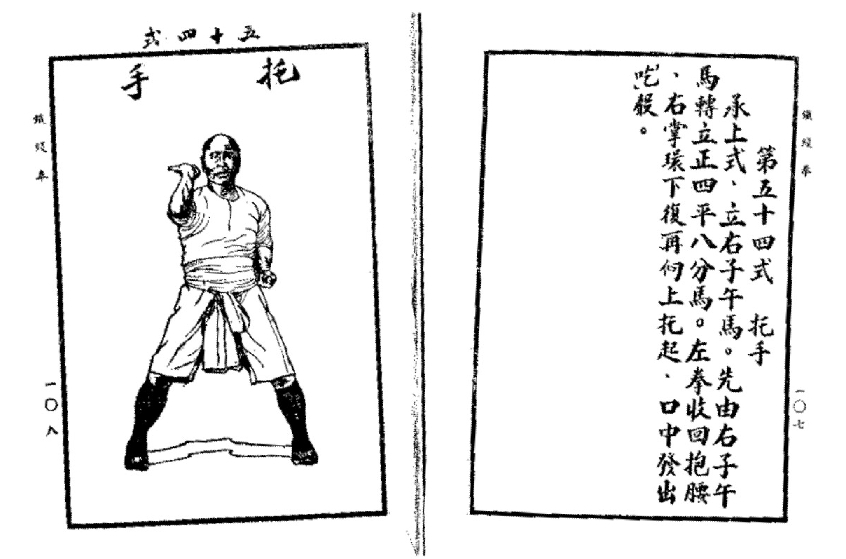 鐵綫拳
一〇七
第五十四式　托手
承上式、立右子午馬。先由右子午
馬轉立正四平八分馬。左拳收回抱腰
、右掌環下復再向上托起、口中發出
「吃」聲。
五十四式
托手
鐵綫拳
一〇八